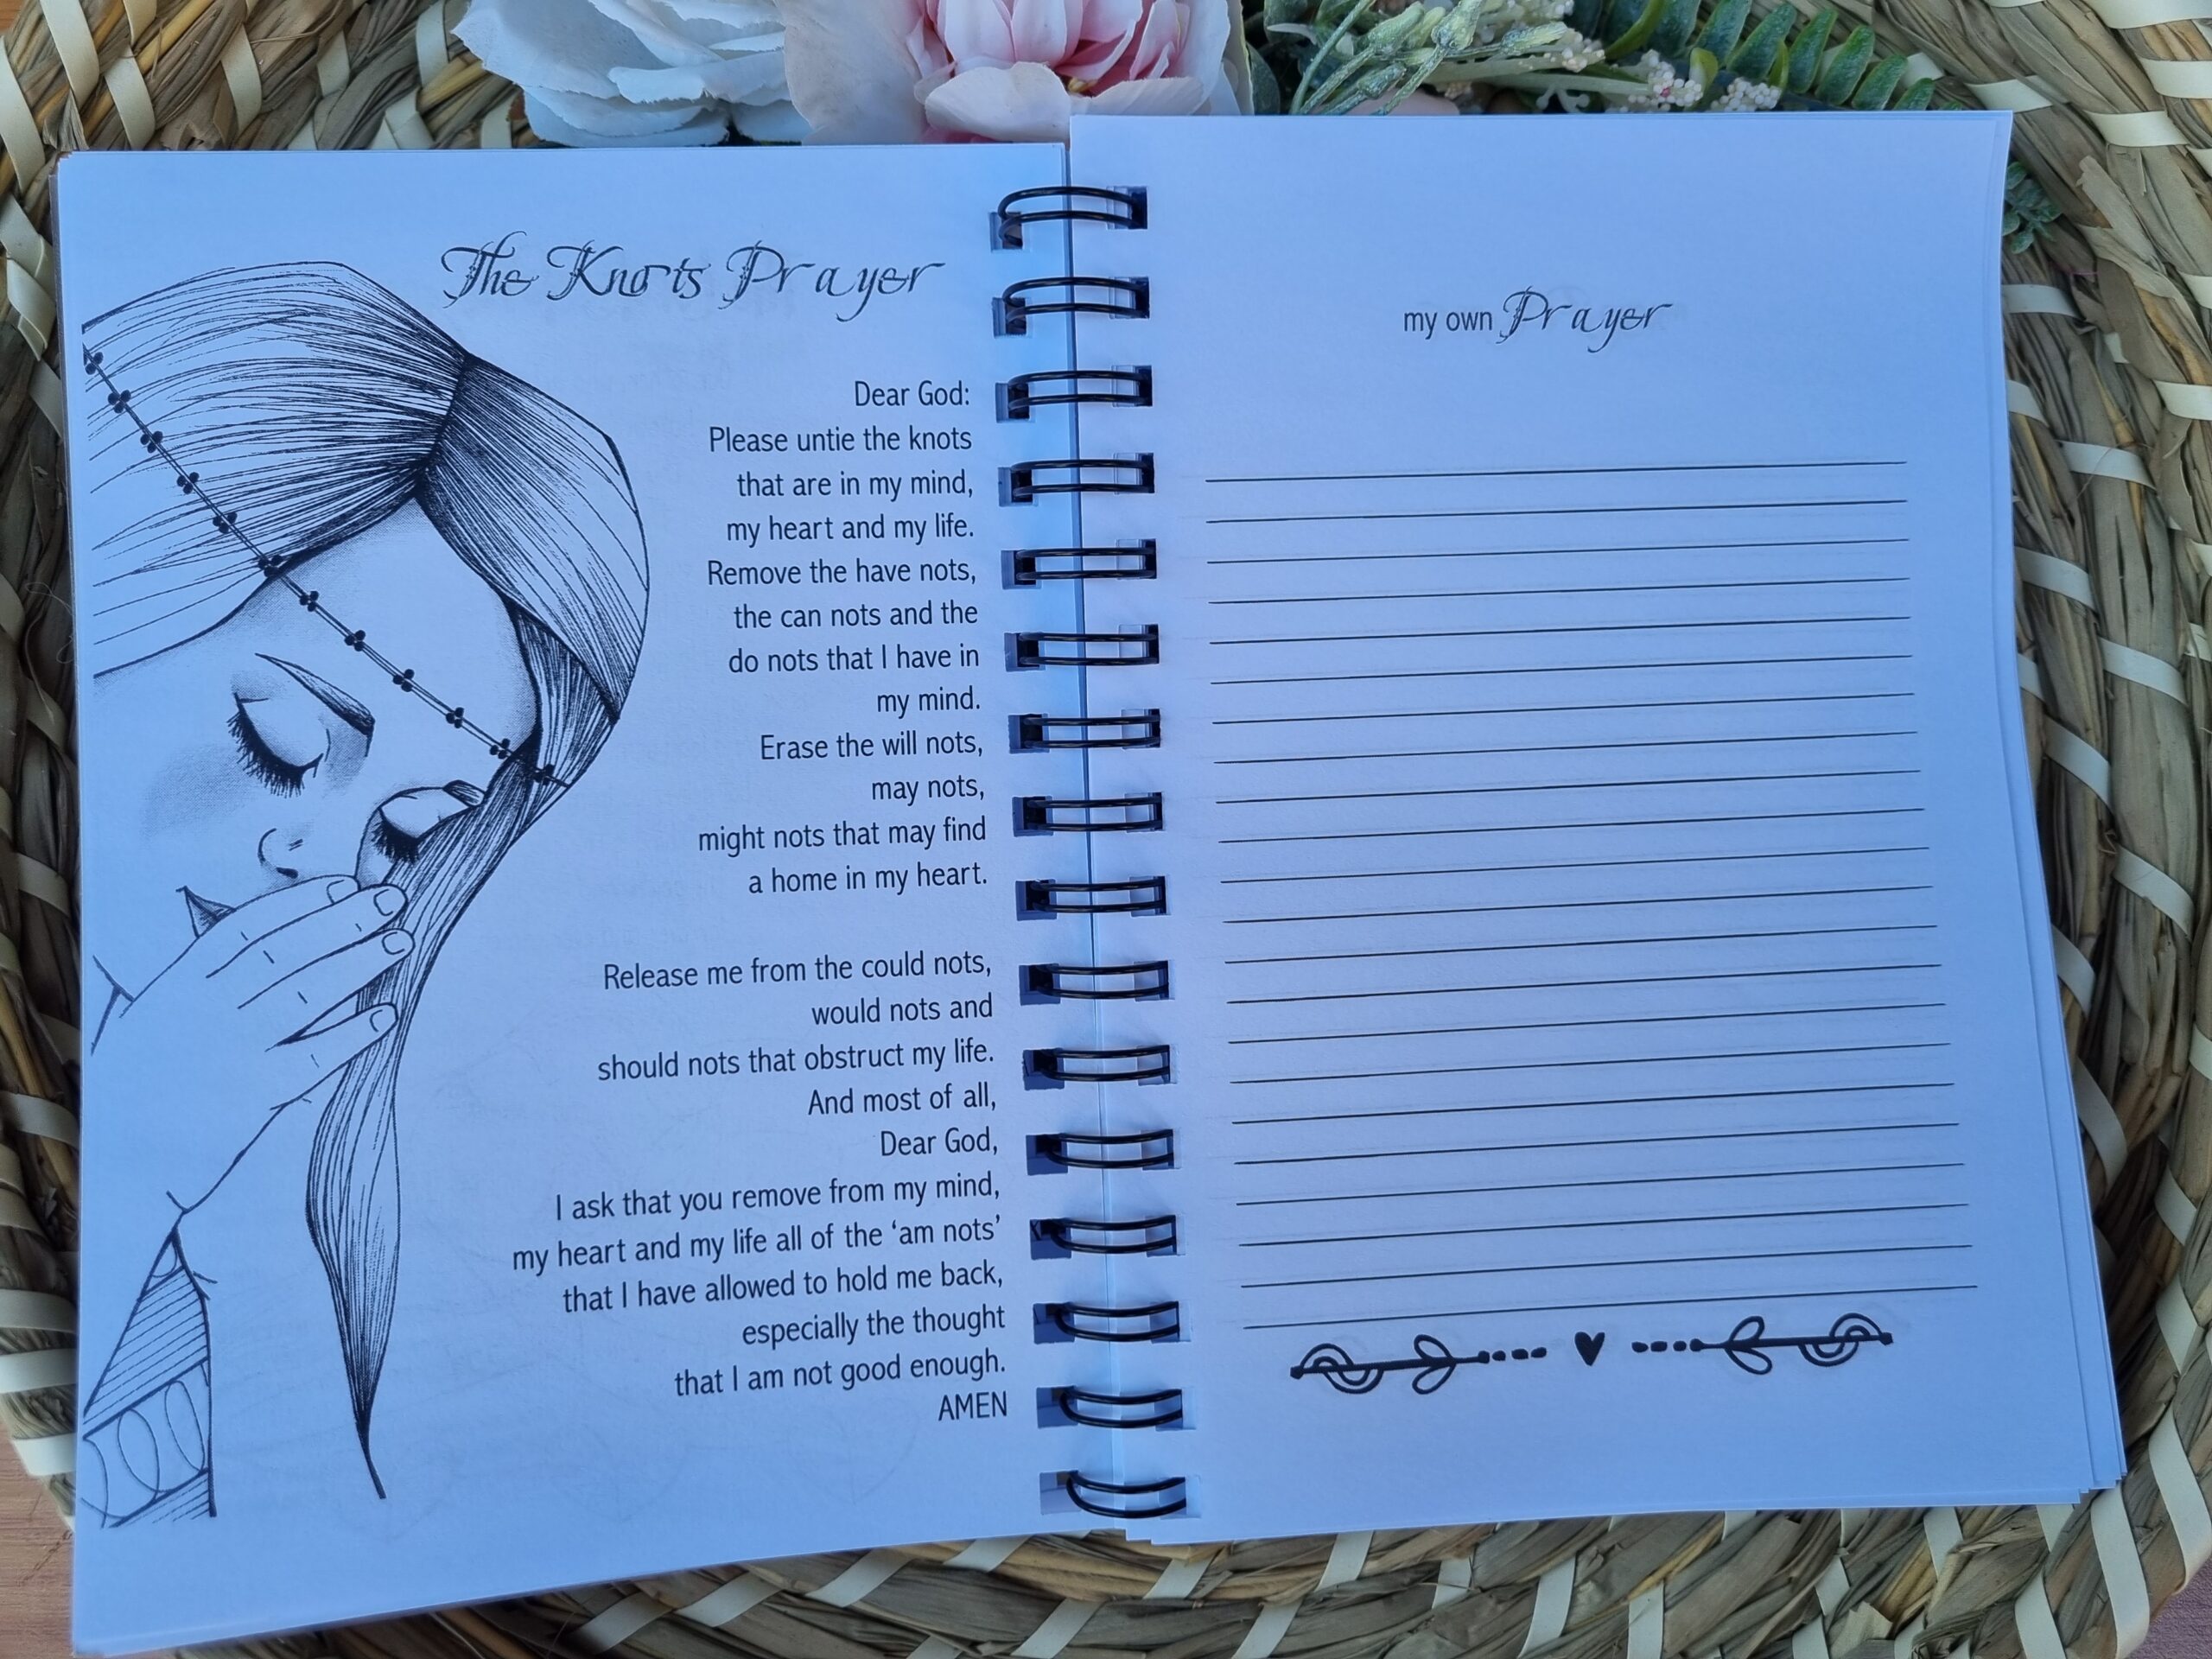 The Knots Prayer
Dear God:
Please untie the knots
that are in my mind,
my heart and my life.
Remove the have nots,
the can nots and the
do nots that I have in
my mind.
Erase the will nots,
may nots,
might nots that may find
a home in my heart.
Release me from the could nots,
would nots and
should nots that obstruct my life.
And most of all,
Dear God,
I ask that you remove from my mind,
my heart and my life all of the ‘am nots’
that I have allowed to hold me back,
especially the thought
that I am not good enough.
AMEN
my own Prayer